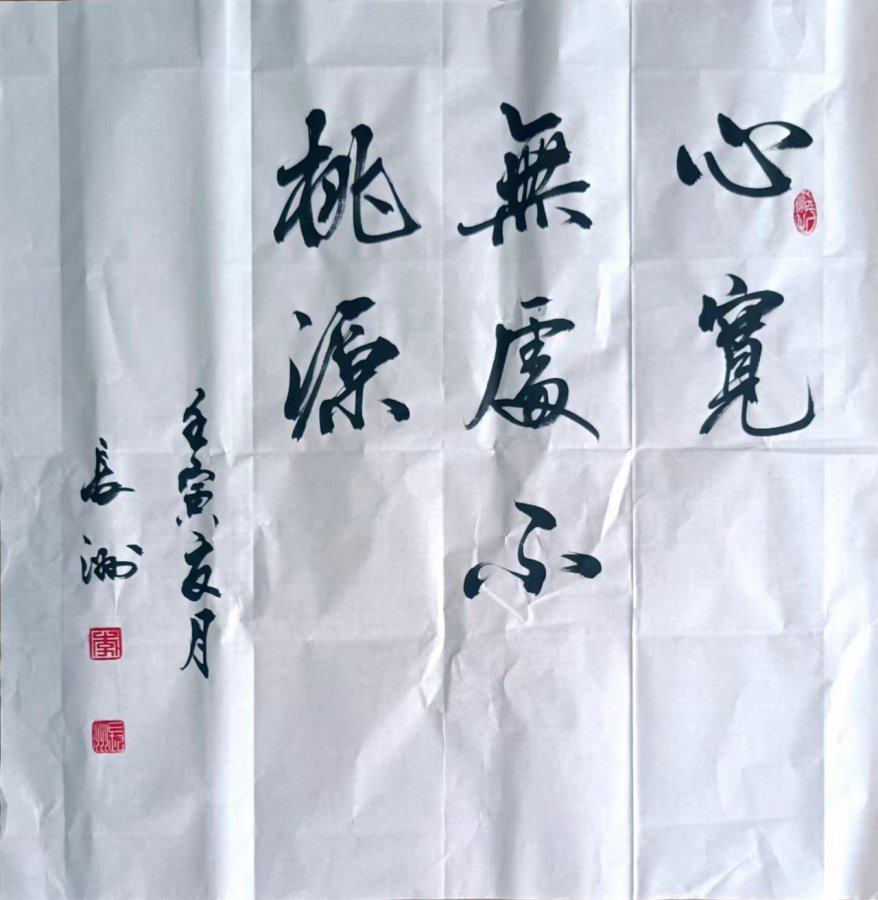 心寬
無處不
桃源
壬寅夏月
長洲
李